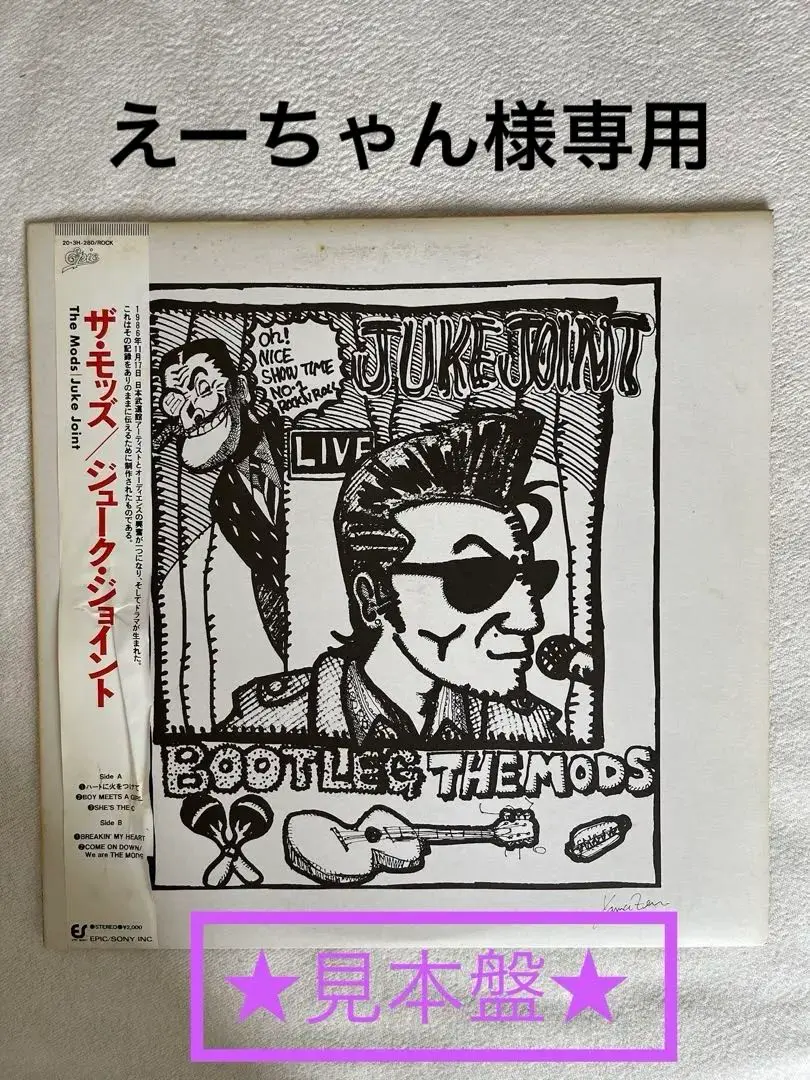 えーちゃん様専用
20・3H-280/ROCK
Epic
ザ・モッズ／ジューク・ジョイント
The Mods/Juke Joint
1986年11月17日、日本武道館アーティストとオーディエンスの興奮が一つになり、そしてドラマが生まれた。
これはその記録をありのままに伝えるために制作されたものである。
Oh!
NICE
SHOW TIME
NO-1
Rock'n Roll
JUKE JOINT
LIVE
BOOTLEG THE MODS
Side A
❶ハートに火をつけて
❷BOY MEETS A GIRL
❸SHE'S THE C
Side B
❶BREAKIN' MY HEART
❷COME ON DOWN/
We are THE MODS
ES
●STEREO●¥2,000
EPIC/SONY INC
★見本盤★